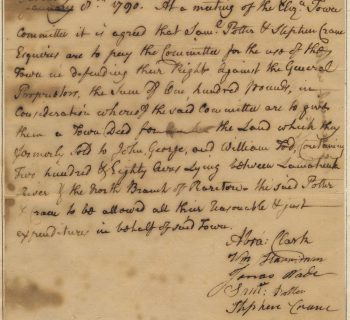 January 8th 1790. At a meeting of the Eliza Town
Committee it is agreed that Sam. Potter & Stephen Crane
Esquires are to pay the Committee for the use of the
Town in defending their Right against the General
Proprietors, the Sum of One hundred Pounds, in
Consideration whereof the said Committee are to give
them a Town Deed for the Land which they
formerly sod to John, George, and William Tod, Containing
Two hundred & Eighty Acres Lying between Lamatunk
River & the North Branch of Raritan the said Potter
& Crane to be allowed all their Reasonable & just
expenditures in behalf of said Town.
Abra: Clark
Wm
Jonas Wade
Potter
Stephen Crane